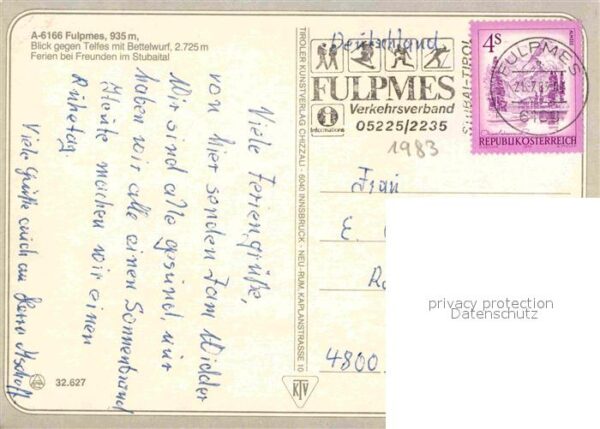 A-6166 Fulpmes, 935 m,
Blick gegen Telfes mit Bettelwurf, 2.725 m
Ferien bei Freunden im Stubaital
Viele Feriengrüße,
von hier senden Fam Widder
Wir sind alle gesund, nur
haben wir alle einen Sonnenbrand
Heute machen wir einen
Ruhetag.
Viele Grüße auch an Herrn
32.627
TIROLER KUNSTVERLAG CHIZZALI · 6040 INNSBRUCK - NEU-RUM, KAPLANSTRASSE 10
KTV
Deutschland
FULPMES
Verkehrsverband
i
Informations
05225/2235
STUBAI-TIROL
FULPMES
6166
4S
REPUBLIK ÖSTERREICH
1983
Frau
E.
4800
privacy protection
Datenschutz